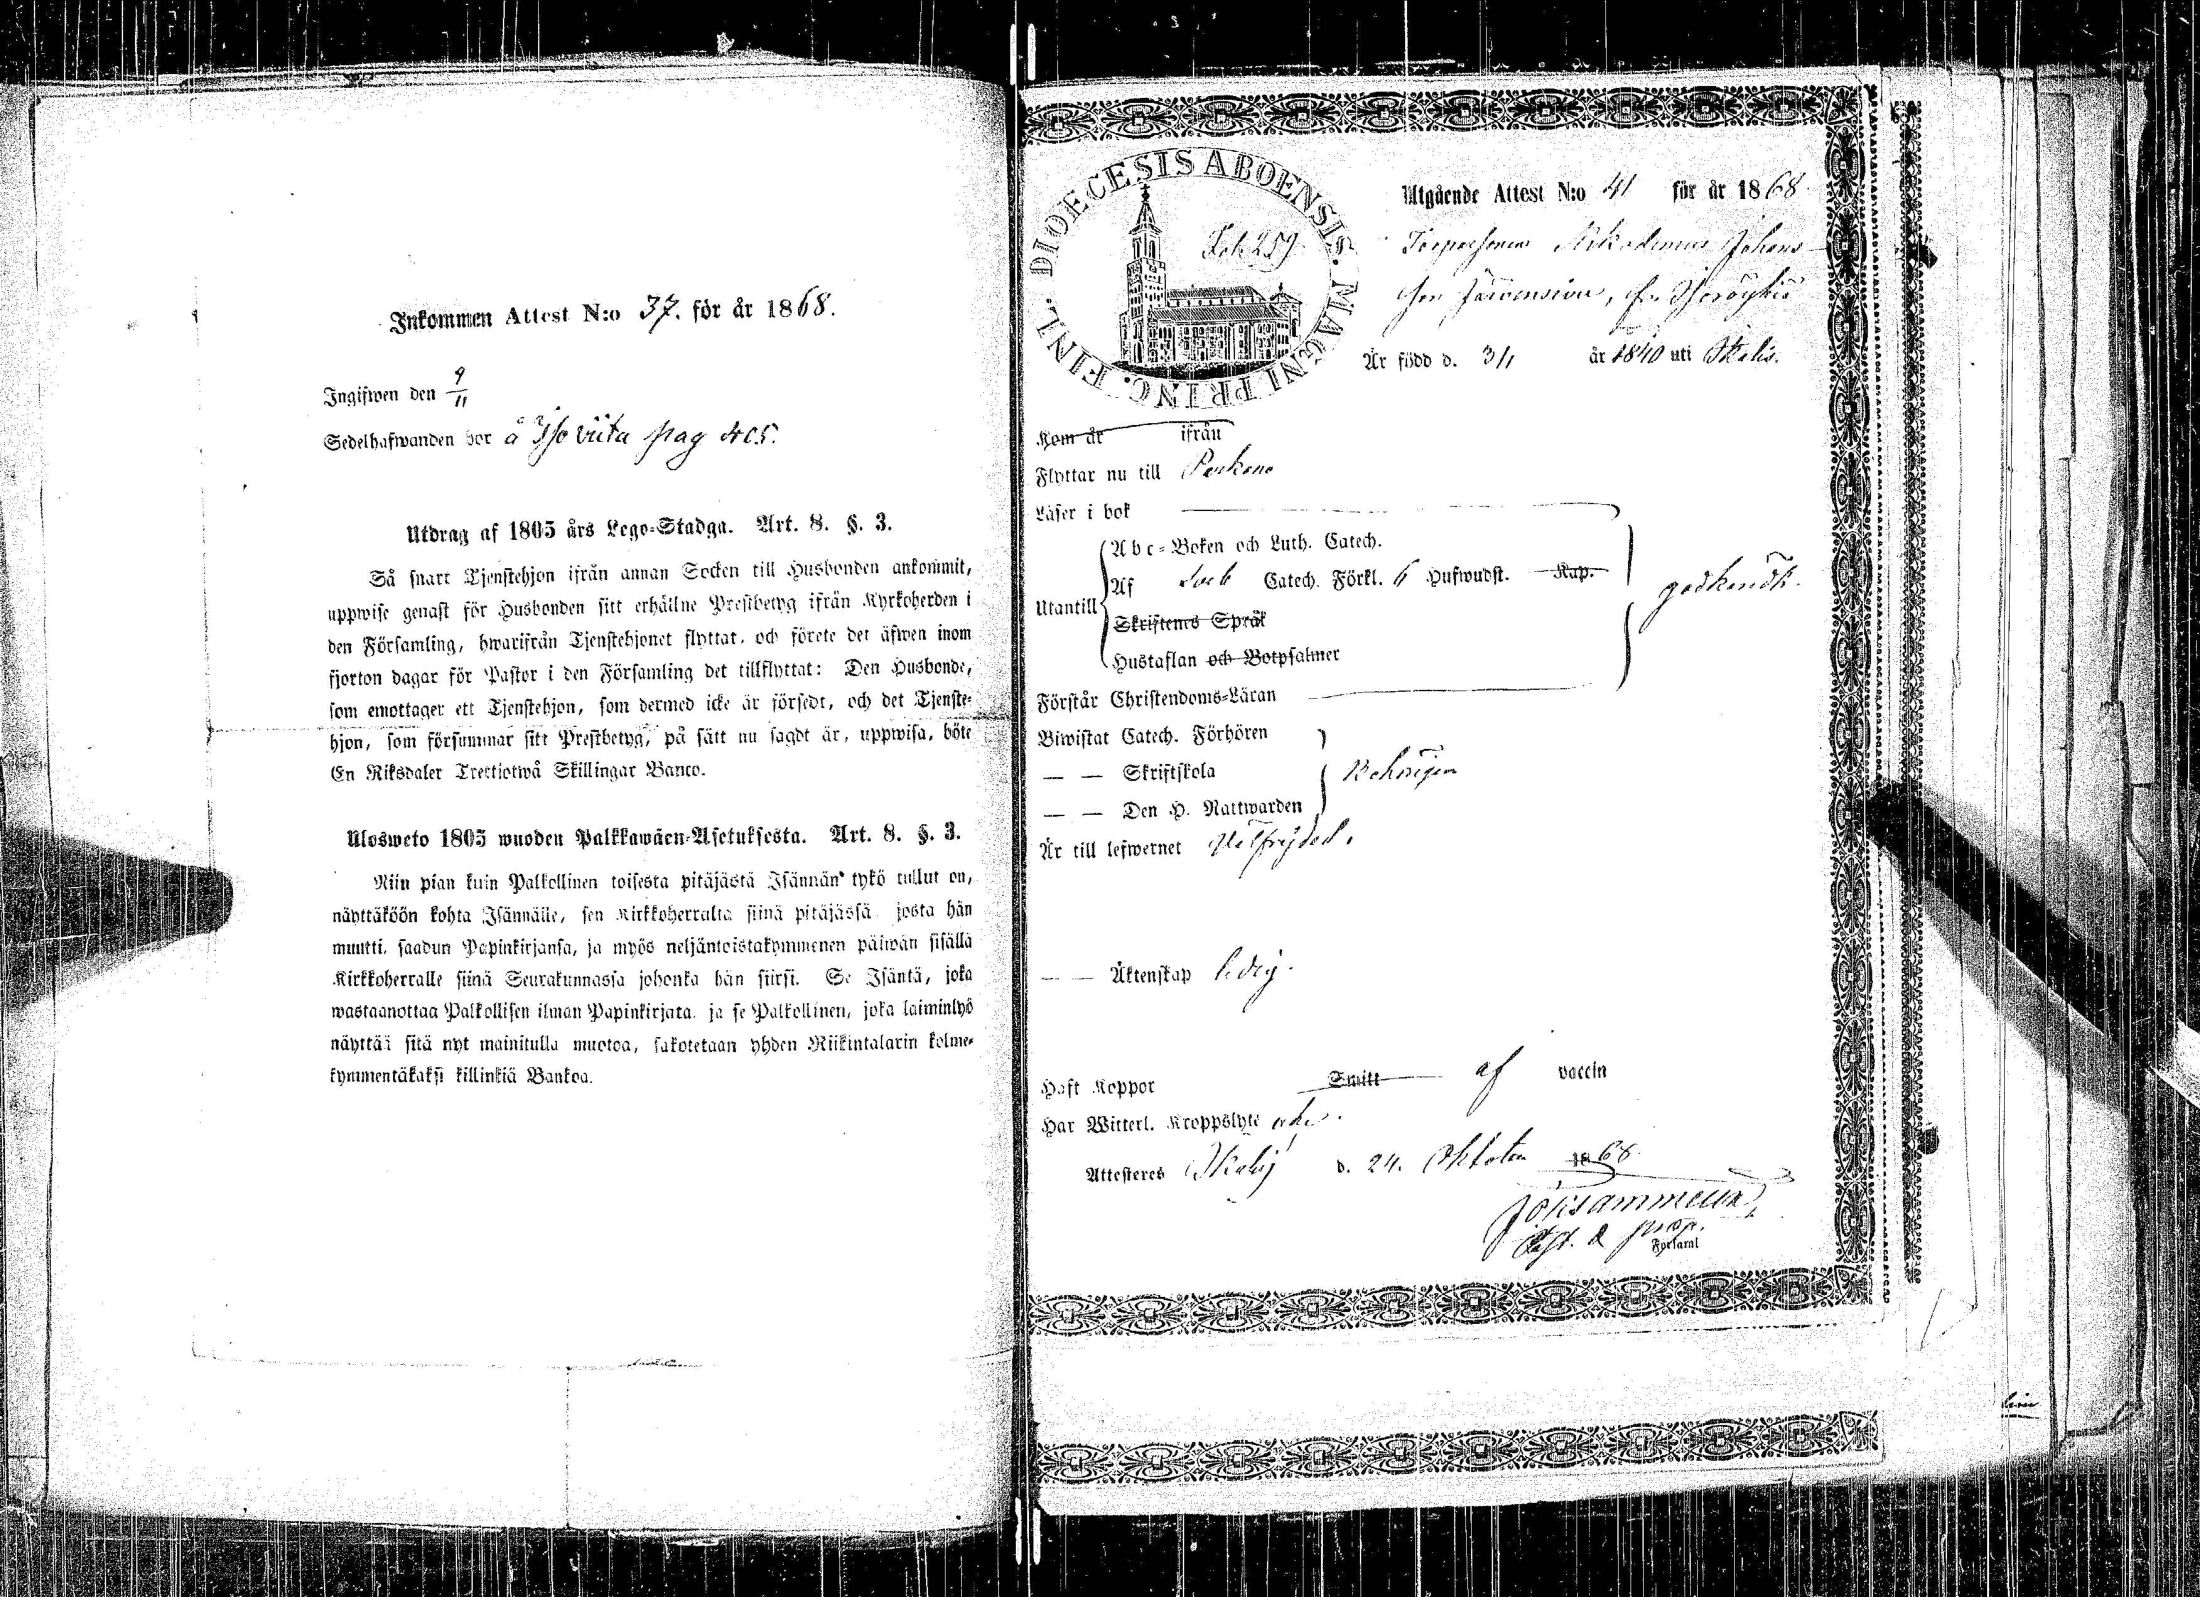 Inkommen Attest N:o 37. för år 1868.
Ingifwen den 9/11
Sedelhafwanden bor å Iso viita pag
Utdrag af 1805 års Lego-Stadga. Art. 8. §. 3.
Så snart Tjenstehjon ifrån annan Socken till Husbonden ankommit,
uppwise genast för Husbonden sitt erhållne Prestbetyg ifrån Kyrkoherden i
den Församling, hwarifrån Tjenstehjonet flyttat, och förete det äfwen inom
fjorton dagar för Pastor i den Församling det tillflyttat: Den Husbonde,
som emottager ett Tjenstehjon, som dermed icke är försedt, och det Tjenste-
hjon, som försummar sitt Prestbetyg, på sätt nu sagdt är, uppwisa, böte
En Riksdaler Trettiotwå Skillingar Banco.
Ulosweto 1805 wuoden Palkkawäen-Asetuksesta. Art. 8. §. 3.
Niin pian kuin Palkollinen toisesta pitäjästä Isännän tykö tullut on,
näyttäköön kohta Isännälle, sen Kirkkoherralta siinä pitäjässä josta hän
muutti, saadun Papinkirjansa, ja myös neljäntoistakymmenen päiwän sisällä
Kirkkoherralle siinä Seurakunnassa johonka hän siirsi. Se Isäntä, joka
wastaanottaa Palkollisen ilman Papinkirjata, ja se Palkollinen, joka laiminlyö
näyttää sitä nyt mainitulla muotoa, sakotetaan yhden Riikintalarin kolme-
kymmentäkaksi killinkiä Bankoa.
DIOECESIS ABOENSIS. MAGNI PRINC. FINL.
259
Utgående Attest N:o 41 för år 1868
Torparsonen Nikodemus Johans
son Järvensivu, fr.
Är född d. 3/1 år 1840 uti Ikalis.
Kom år ifrån
Flyttar nu till Parkano
Läser i bok
Abc-Boken och Luth. Catech.
Utantill Af Catech. Förkl. 6 Hufwudst. Kap. godkändt.
Skriftenes Språk
Hustaflan och Botpsalmer
Förstår Christendoms-Läran
Biwistat Catech. Förhören
— — Skriftskola Behörigen
— — Den H. Nattwarden
Är till lefwernet Välfrejdad.
— — Äktenskap ledig.
Haft Koppor Smitt af vaccin
Har Witterl. Kroppslyte
Attesteras Ikalis d. 24. Oktober 1868
Past. & prop.
Församl